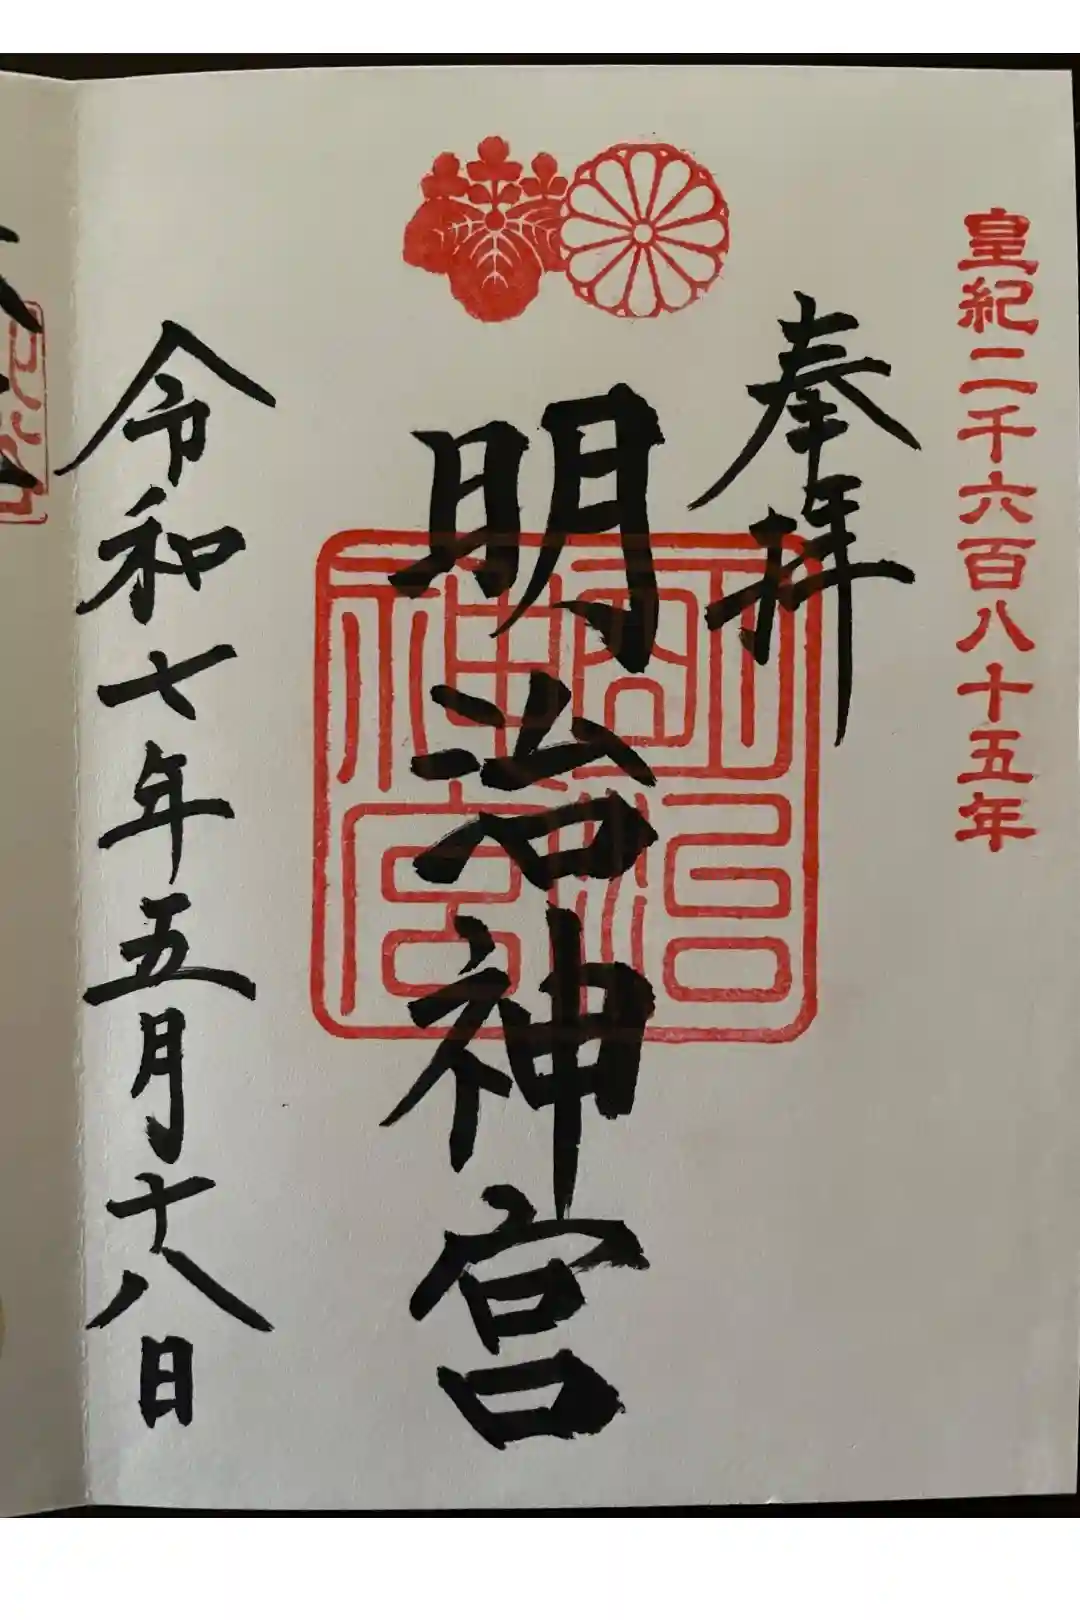 皇紀二千六百八十五年
奉拝
明治神宮
明治神宮
令和七年五月十八日